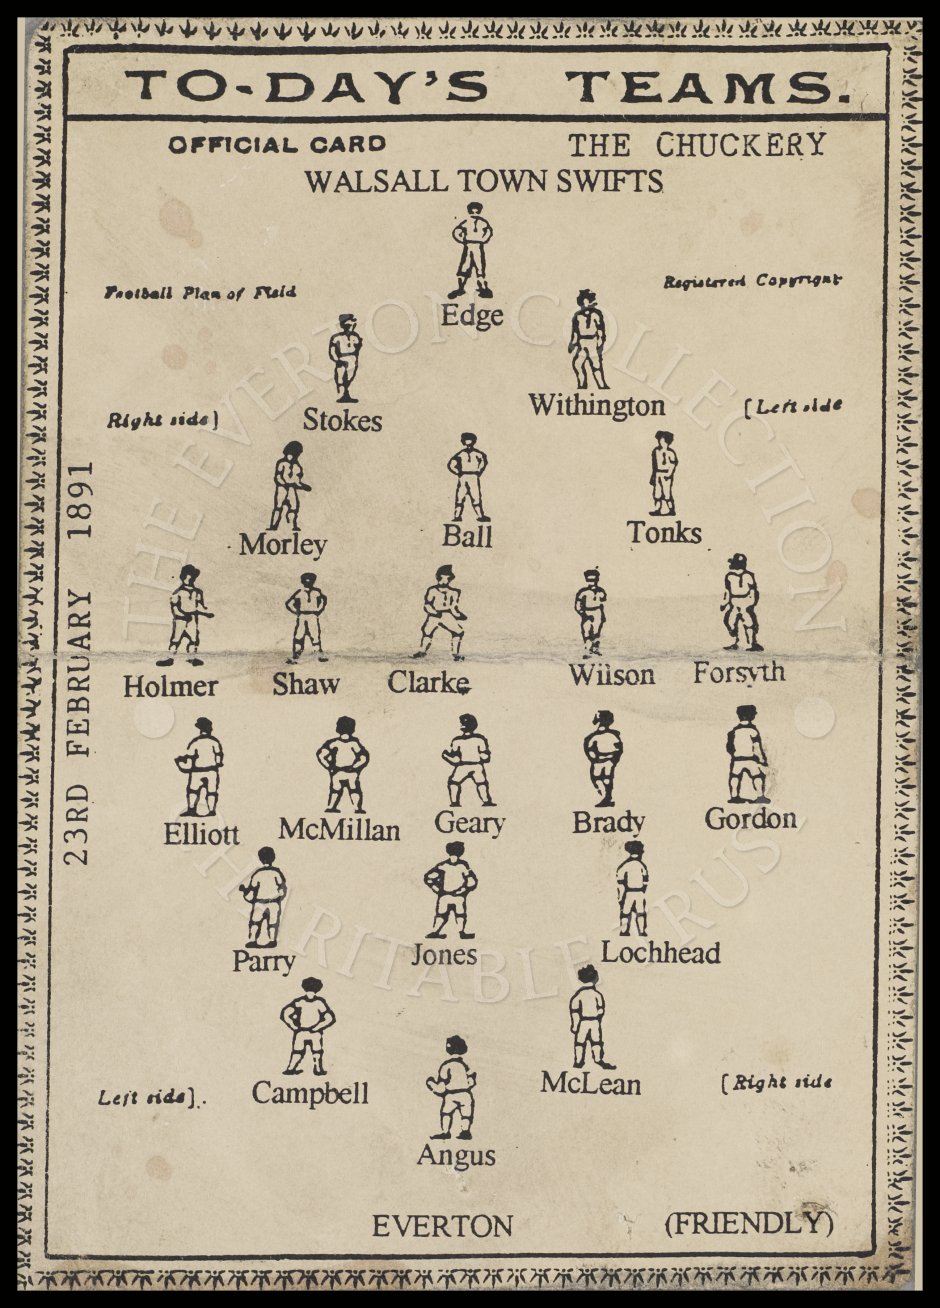 TO-DAY'S TEAMS.
OFFICIAL CARD THE CHUCKERY
WALSALL TOWN SWIFTS
Edge
Football Plan of Field Registered Copyright
Stokes Withington
Right side] [Left side
Morley Ball Tonks
Holmer Shaw Clarke Wilson Forsyth
23RD FEBRUARY 1891
Elliott McMillan Geary Brady Gordon
Parry Jones Lochhead
Campbell McLean
Left side]. [Right side
Angus
EVERTON (FRIENDLY)
THE EVERTON COLLECTION
CHARITABLE TRUST